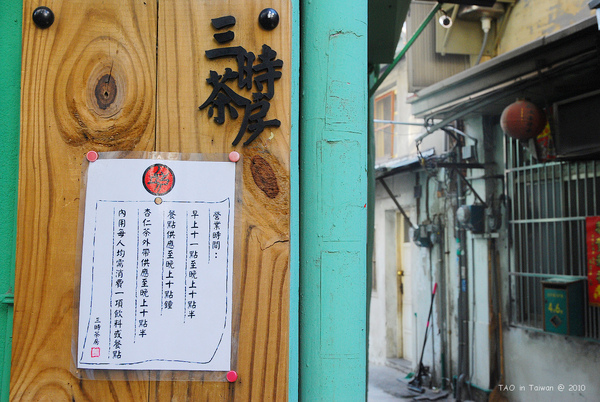 三時茶房
營業時間：
早上十一點至晚上十點半
餐點供應至晚上十點鐘
杏仁茶外帶供應至晚上十點半
內用每人均需消費一項飲料或餐點
三時茶房
TAO in Taiwan @ 2010